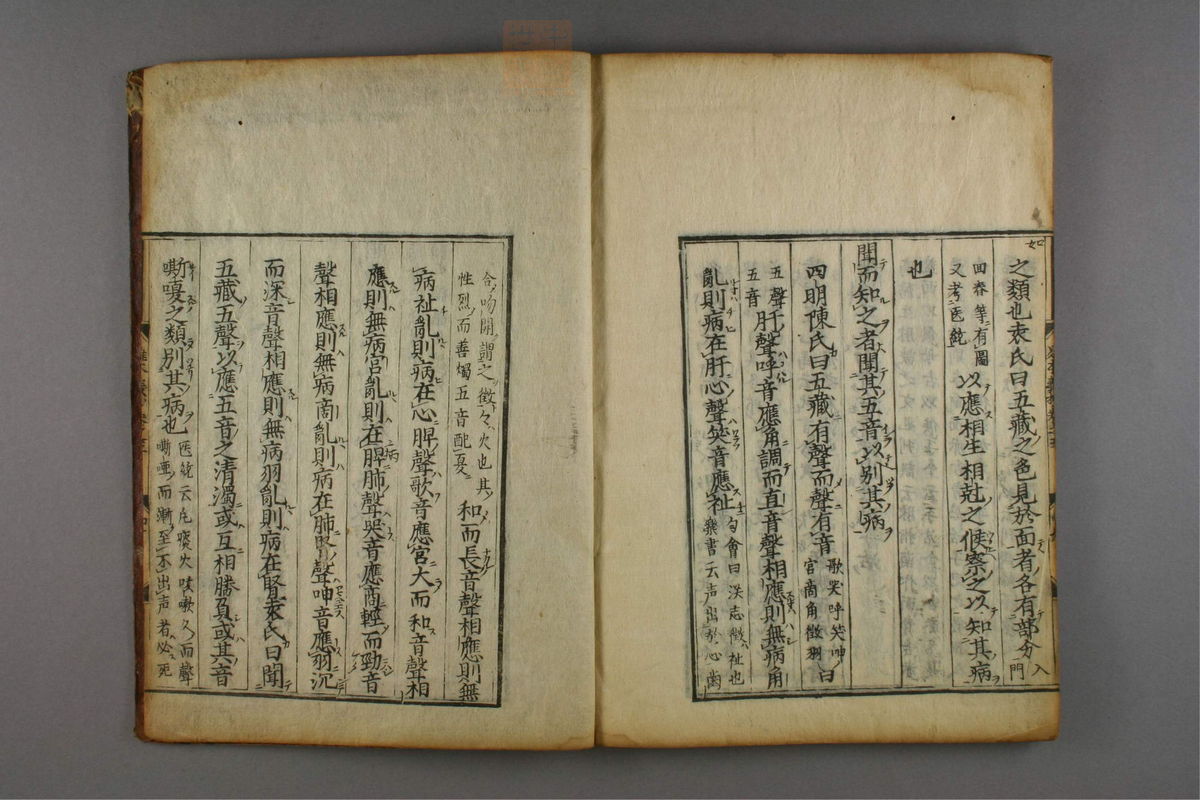 之類也袁氏曰五藏之色見於面者各有部分門入
如回春等有圖又考医統以應相生相尅之候察之以知其病
也
聞而知之者聞其五音以別其病
四明陳氏曰五藏有聲而聲有音歌哭呼笑呻曰宮商角徵羽
五聲五音肝聲呼音應角調而直音聲相應則無病角
亂則病在肝心聲笑音應祉句會曰漢志徵祉也樂書云声出於心歯
合吻開謂之徵々火也其性烈而善燭五音配夏和而長音聲相應則無
病祉亂則病在心脾聲歌音應宮大而和音聲相
應則無病宮亂則病在脾肺聲哭音應商輕而勁音
聲相應則無病商亂則病在肺腎聲呻音應羽沉
而深音聲相應則無病羽亂則病在腎袁氏曰聞
五藏五聲以應五音之清濁或互相勝負或其音
嘶嗄之類別其病也医統云凡痰火咳嗽久而聲嘶啞而漸至不出声者必死